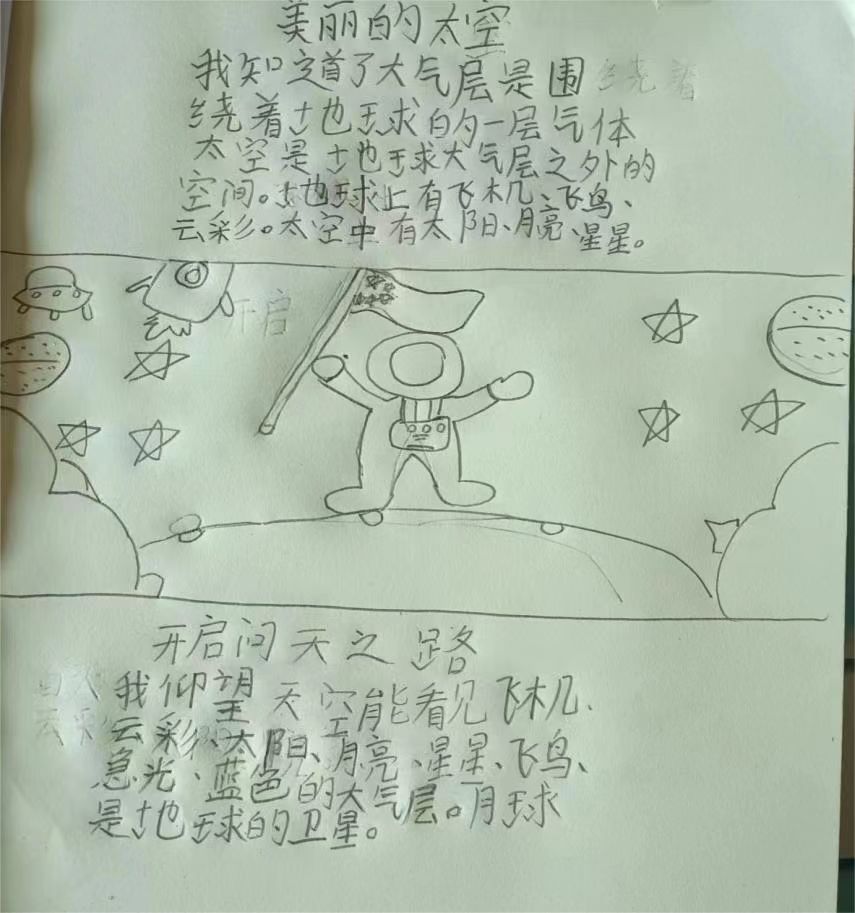 美丽的太空
我知道了大气层是围绕着
绕着地球的一层气体
太空是地球大气层之外的
空间。地球上有飞机、飞鸟、
云彩。太空中有太阳、月亮、星星。
开启
开启问天之路
我仰望天空能看见飞机、
云彩、太阳、月亮、星星、飞鸟、
急光、蓝色的大气层。月球
是地球的卫星。